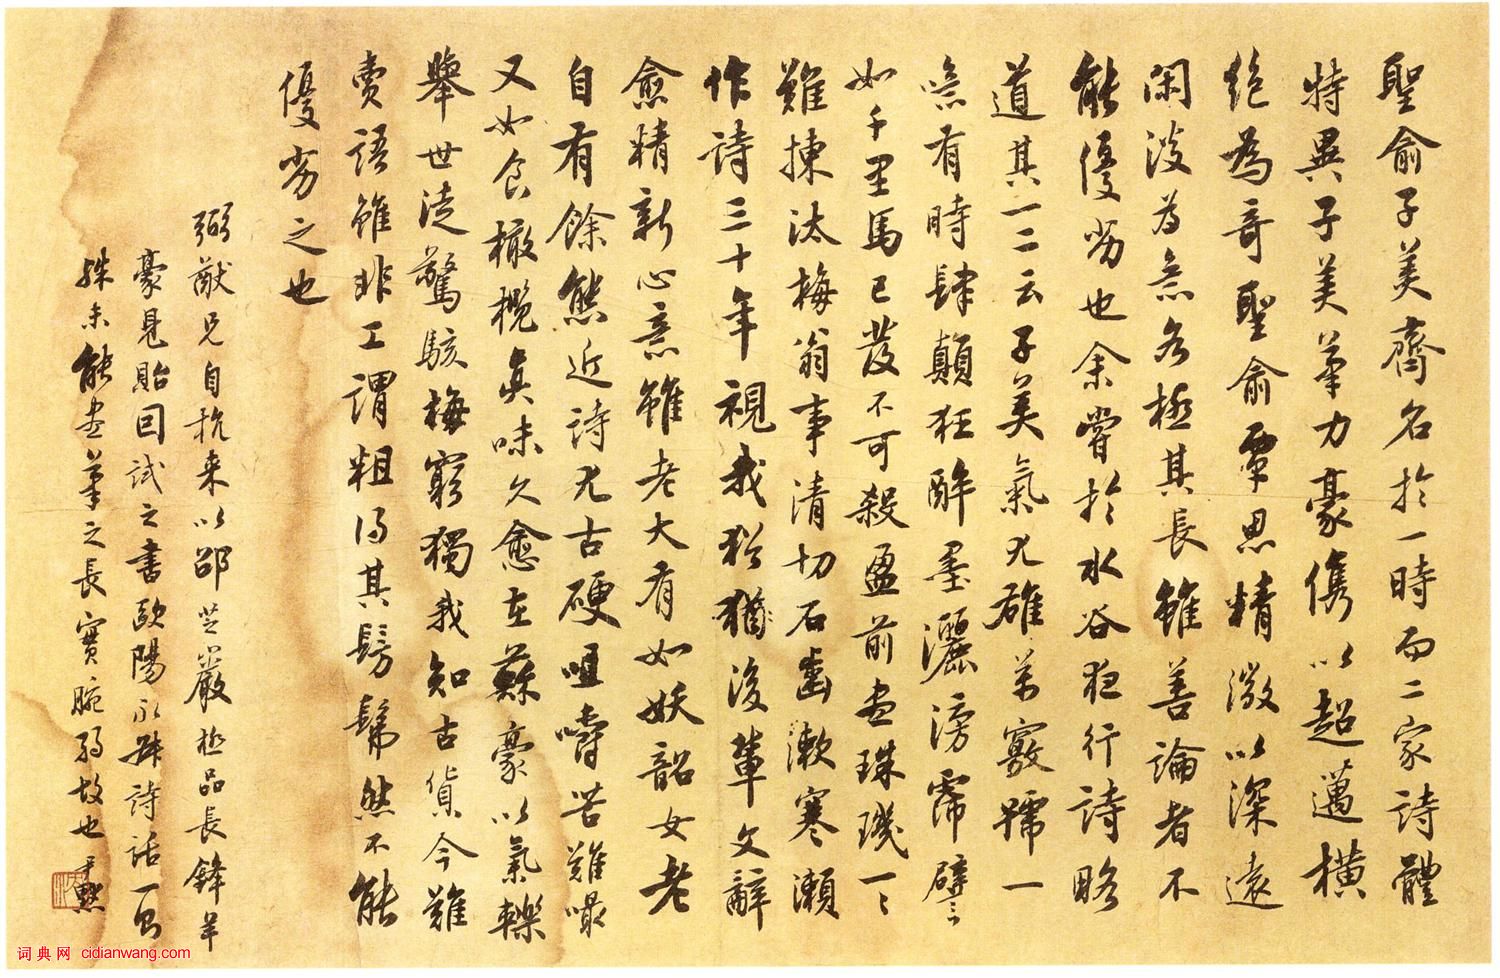 聖俞子美齊名於一時而二家詩體
特異子美筆力豪儁以超邁橫
絕為奇聖俞覃思精微以深遠
閑淡為意各極其長雖善論者不
能優劣也余嘗於水谷夜行詩略
道其一二云子美氣尤雄萬竅號一
噫有時肆顛狂醉墨灑滂霈譬
如千里馬已發不可殺盈前盡珠璣一一
難揀汰梅翁事清切石齒漱寒瀨
作詩三十年視我猶後輩文辭
愈精新心意雖老大有如妖韶女老
自有餘態近詩尤古硬咀嚼苦難嘬
又如食橄欖真味久愈在蘇豪以氣轢
舉世徒驚駭梅窮獨我知古貨今難
賣語雖非工謂粗得其髣髴然不能
優劣之也
弼猷兄自杭来以邵芝巖極品長鋒羊
豪見貽因試之書歐陽永叔詩話一則
殊未能盡筆之長實腕弱故也 尹默
词典网 cidianwang.com